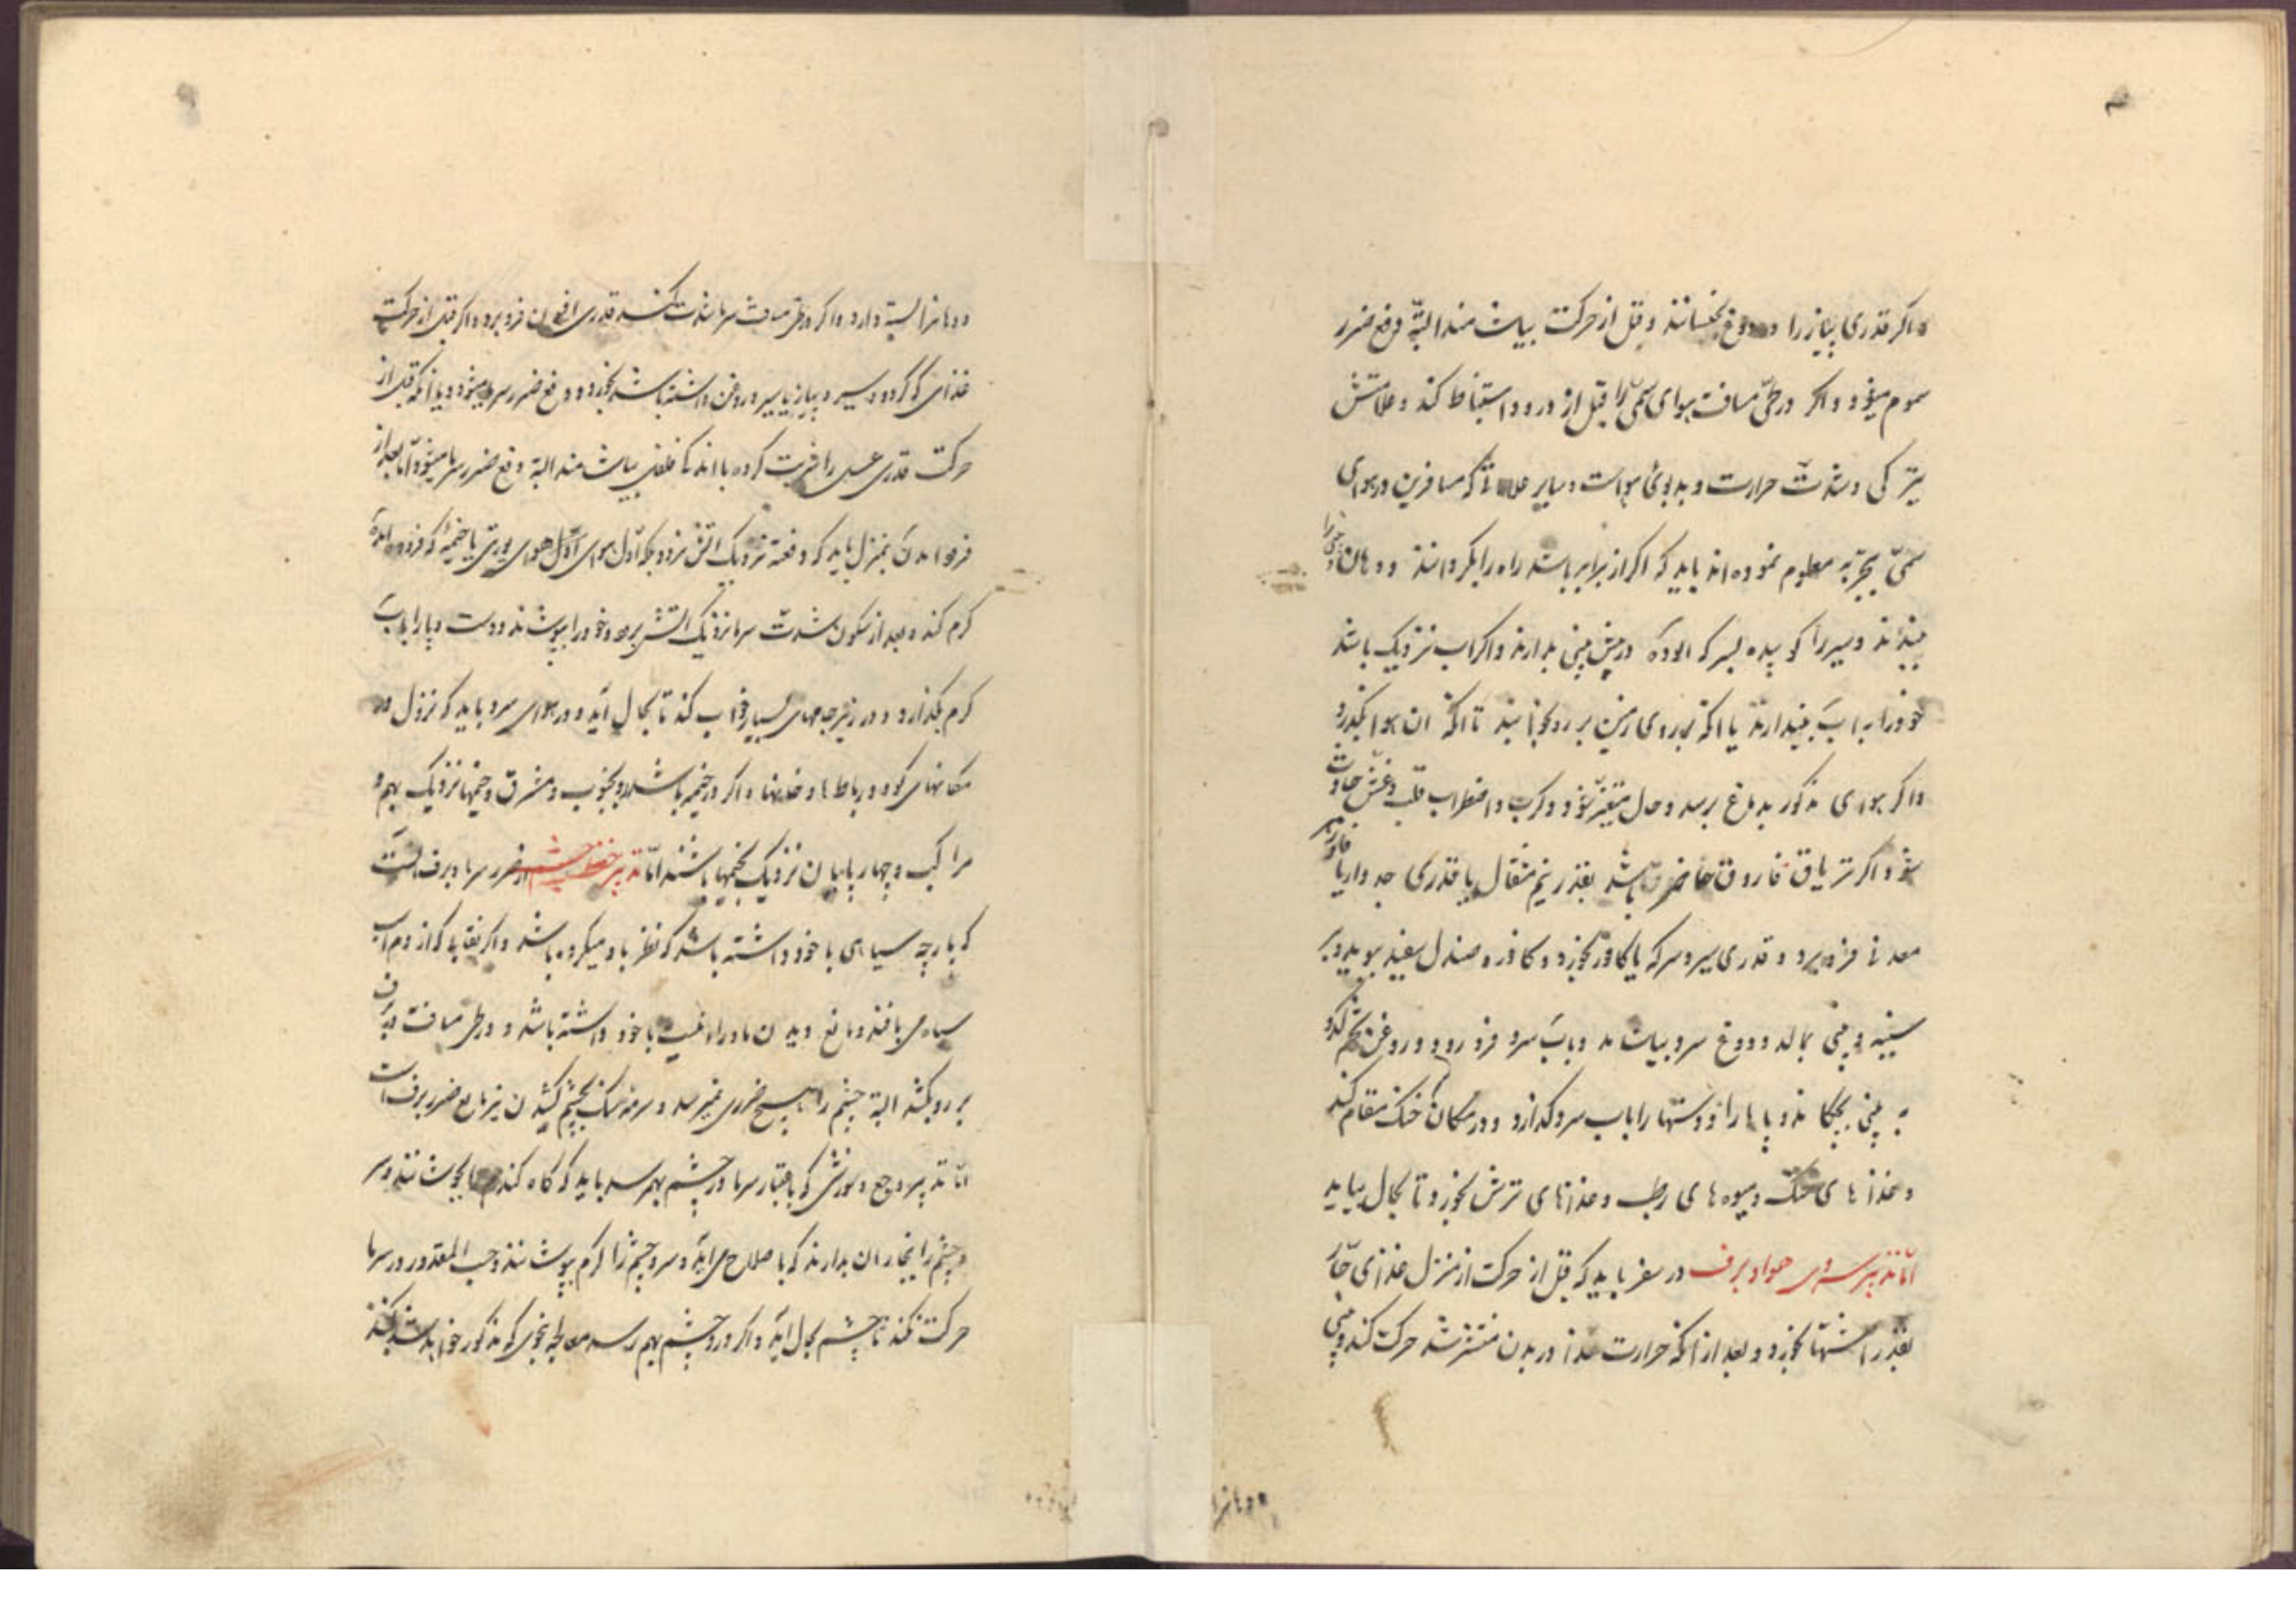 و اکر قدری پیاز را در دوغ بخیسانند و قبل از حرکت بیاشامند البته دفع ضرر
سموم میشود و اکر در طی مسافت هوای سمی را قبل از ورود استنباط کند و علامتش
تیرکی و شدت حرارت و بدبوئی هواست و سایر علاماتی که مسافرین در هوای
سمی بتجربه معلوم نموده اند باید که اکر از برابر باشد راه را بکردانند و دهان و بینی را
ببندند و سیر را کوبیده بسرکه الوده در پیش بینی بدارند و اکر اب نزدیک باشد
خود را به اب بیندازند یا انکه بر روی زمین بر رو بخوابند تا انکه ان هوا بکذرد
و اکر هوای مذکور بدماغ برسد و حال متغیر شود و کرب و اضطراب قلب و غش حادث
شود اکر تریاق فاروق حاضر باشد بقدر نیم مثقال یا قدری جدوار یا فادزهر
معدنی فرو برد و قدری سیر و سرکه یا بخورد و کافور و صندل سفید ببوید و بر
سینه و بینی بمالد و دوغ سرد بیاشامد و باب سرد فرو رود و روغن تخم کدو
به بینی بچکاند و پاها را و دستها را باب سرد کذارد و در مکان خنک مقام کند
و غذاهای خنک و میوه های رطب و غذاهای ترش بخورد تا بحال بیاید
اما تدبیر سردی هوا و برف در سفر باید که قبل از حرکت از منزل غذای حار
بقدر اشتها بخورد و بعد از انکه حرارت غذا در بدن منتشر شد حرکت کند و بینی
و دهانرا
و دهانرا بسته دارد و اکر در طی مسافت سرما شدت کند قدری افیون فرو برد و اکر قبل از حرکت
غذای که کردو و سیر و پیاز یا سیر و روغن داشته باشد بخورد دفع ضرر سرما میشود و یا انکه قبل از
حرکت قدری عسل را شربت کرده با اندک فلفلی بیاشامد البته دفع ضرر سرما میشود و اما بعد از
فرود امدن بمنزل باید که دفعة نزدیک اتش نرود بلکه اول هوای یورتی یا خیمهٔ که فرود امده
کرم کند و بعد از سکون شدت سرما نزدیک اتش برود و خود را بپوشاند و دست و پا را باب
کرم بکذارد و در زیر جامهای بسیار خواب کند تا بحال آید و در هوای سرد باید که نزول در
مکانهای کود و رباطها و خانها و اکر در خیمه باشد رو بجنوب و مشرق و خیمها نزدیک بهم و
مراکب و چهارپایان نزدیک بخیمها باشند اما تدبیر حفظ چشم از ضرر سرما و برف انست
که پارچه سیاهی با خود داشته باشد که نظر باو میکرده باشد و اکر نقاب که از دم اسب
سیاه می بافند و مانع دیدن ماورا نیست با خود داشته باشد و در طی مسافت در برف
بر رو بکشد البته چشم را هیچ ضرری نمیرسد و سرمه سنک بچشم کشیدن نیز مانع ضرر برف است
اما تدبیر وجع و سوزش که باعتبار سرما در چشم بهمرسد باید که کاه کندم را بجوشانند و سر
و چشم را ببخار ان بدارند که باصلاح می اید و سر و چشم را کرم بپوشانند و حسب المقدور در سرما
حرکت نکند تا چشم بحال اید و اکر درد چشم بهم رسد معالجه بنحوی که مذکور خواهد شد بکنند